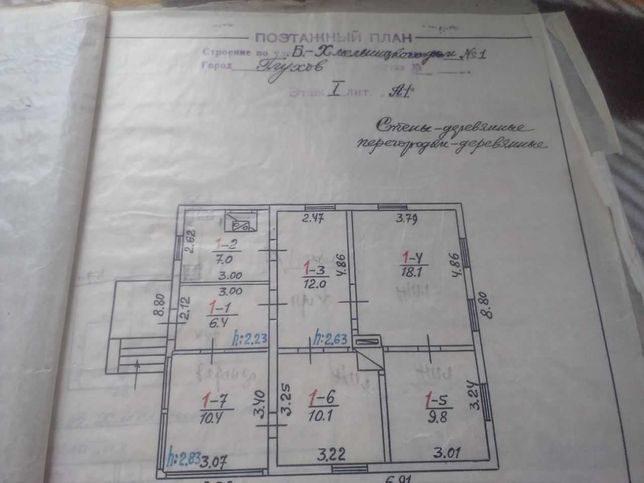 ПОЭТАЖНЫЙ ПЛАН
Строение по ул. Б.-Хмельницкого дом №1
Город Глухов
Этаж I лит. А1
Стены-деревянные
перегородки-деревянные
2.47 3.79
2.62 1-2 7.0 3.00
1-3 12.0 4.86
1-4 18.1 4.86
8.80
8.80
3.00 2.12 1-1 6.4
h:2.23 h:2.63
1-7 10.4 3.40
3.25 1-6 10.1
1-5 9.8 3.24
h:2.83 3.07 3.22 3.01
6.91